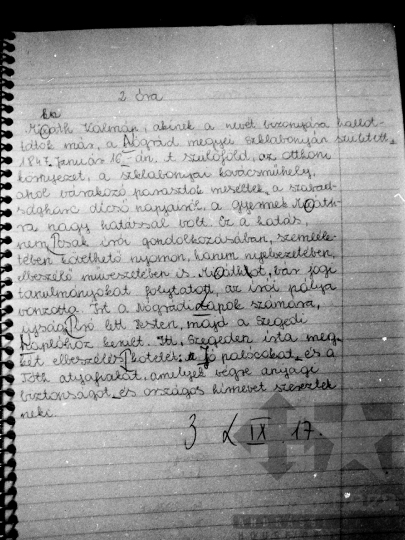 2. óra
ka
Mikszáth Kálmán, akinek a nevét bizonyára hallot-
tátok már, a Nógrád megyei Szklabonyán született
1847. január 16-án. A szülőföld, az otthoni
környezet, a szklabonyai kovácsműhely,
ahol várakozó parasztok meséltek a szabad-
ságharc dicső napjairól, a gyermek
ra nagy hatással volt. Ez a hatás
nem csak írói gondolkozásában, szemléle-
tében követhető nyomon, hanem nyelvezetében,
elbeszélő művészetében is. bár jogi
tanulmányokat folytatott, az írói pálya
vonzotta. Írt a Nógrádi Lapok számára,
újságíró lett Pesten, majd a Szegedi
Naplóhoz került. Itt, Szegeden írta meg
két elbeszélés kötetét: a Jó palócokat és a
Tóth atyafiakat, amelyek végre anyagi
biztonságot és országos hírnevet szereztek
neki.
3 IX 17.